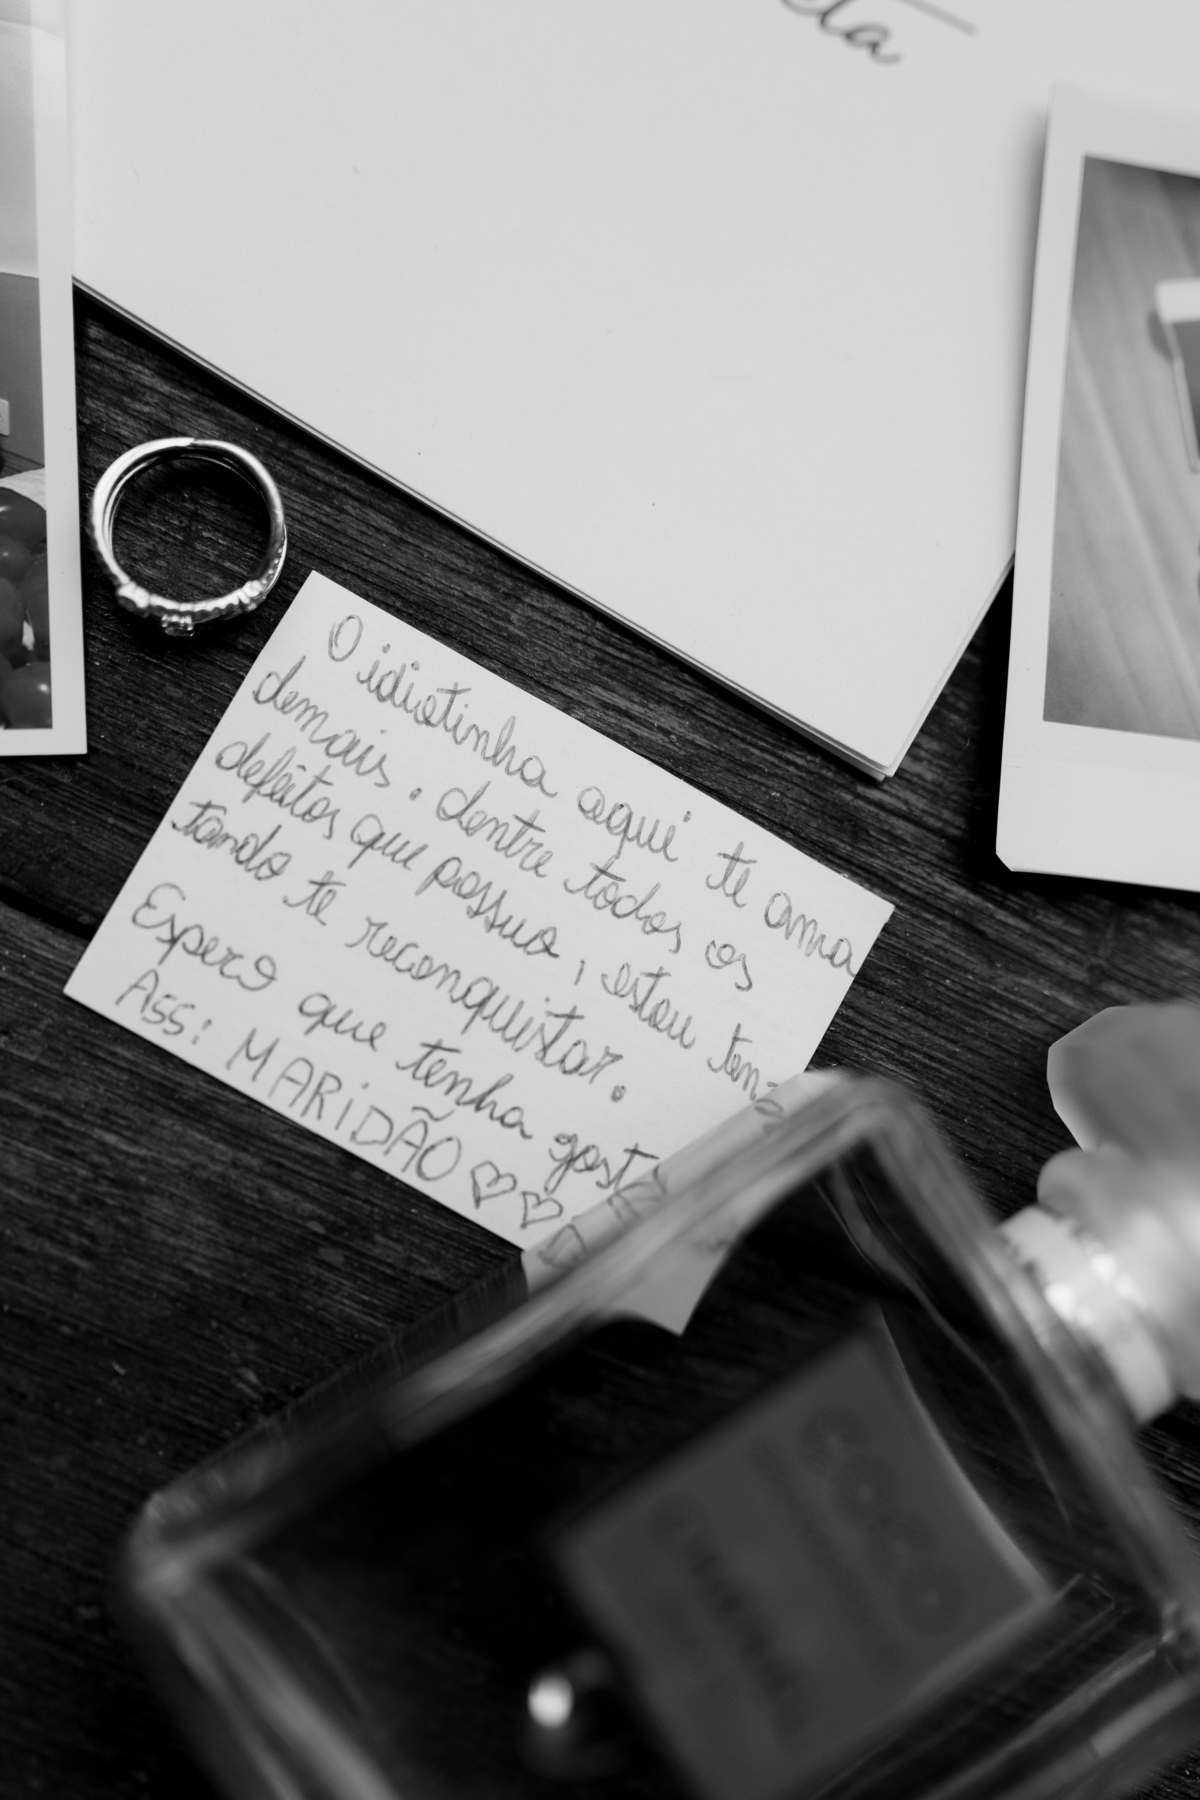 O idiotinha aqui te ama
demais. dentre todos os
defeitos que possuo, estou ten-
tando te reconquistar.
Espero que tenha
Ass: MARiDÃO ♡♡